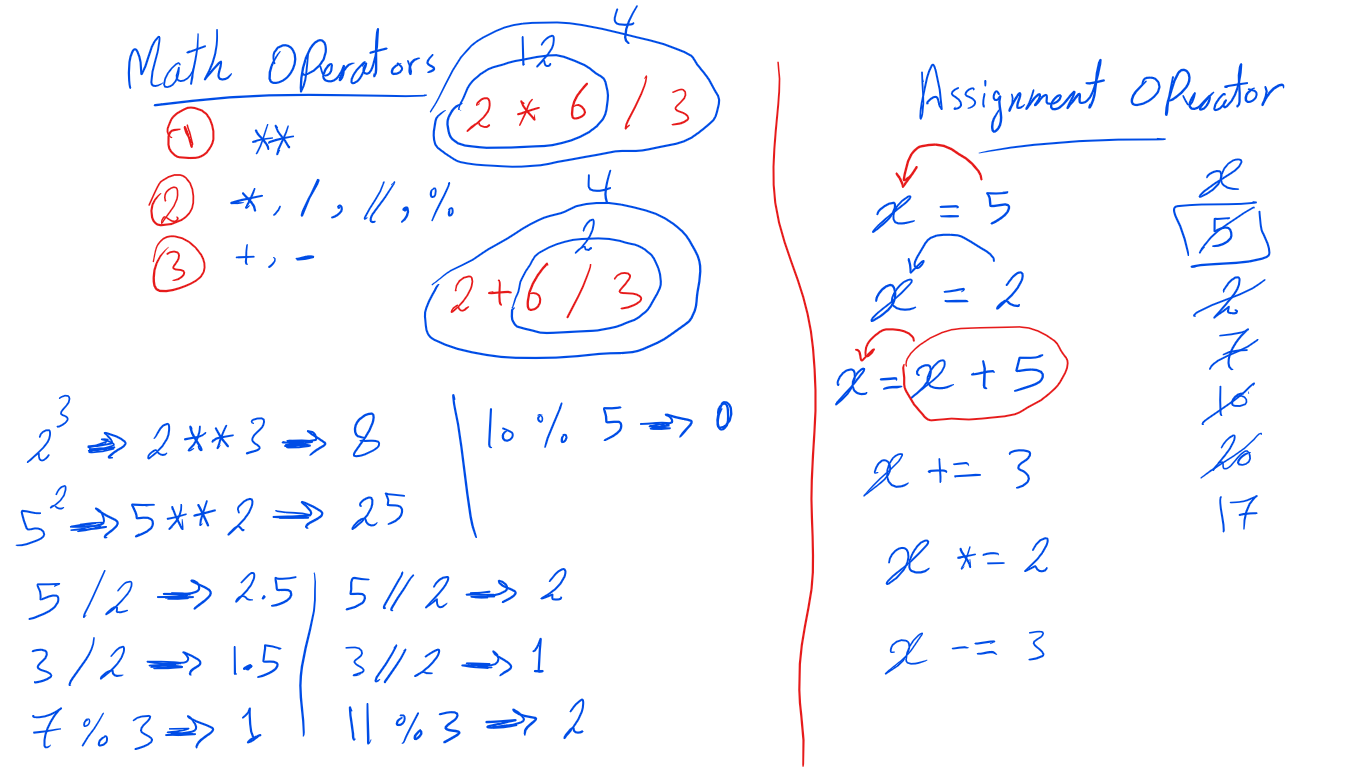 Math Operators
4
12
2 * 6 / 3
1 **
2 *, /, //, %
3 +, -
4
2
2 + 6 / 3
2³ → 2 ** 3 → 8
5² → 5 ** 2 → 25
10 % 5 → 0
5 / 2 → 2.5
5 // 2 → 2
3 / 2 → 1.5
3 // 2 → 1
7 % 3 → 1
11 % 3 → 2
Assignment Operator
x = 5
x = 2
x = x + 5
x += 3
x *= 2
x -= 3
x
5
2
7
10
20
17